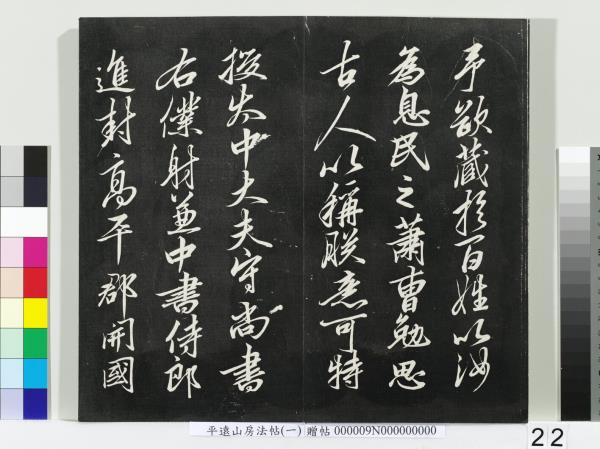 予欲藏於百姓以汝
為息民之蕭曹勉思
古人以稱朕意可特
授太中大夫守尚書
右僕射兼中書侍郎
進封高平郡開國
平遠山房法帖(一) 贈帖 000009N000000000
22